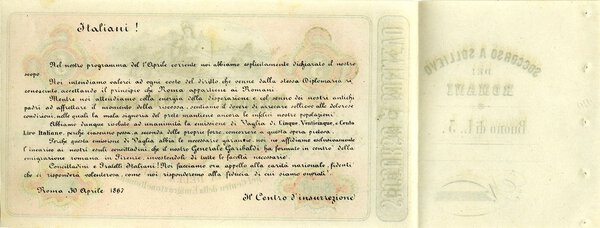 Italiani!
Nel nostro programma del 1º Aprile corrente noi abbiamo esplicitamente dichiarato il nostro
scopo.
Noi intendiamo valerci ad ogni costo del diritto che venne dalla stessa Diplomazia ri-
conosciuto, accettando il principio che Roma appartiene ai Romani.
Mentre noi attendiamo colla energia della disperazione e col senno dei nostri antichi
padri ad affrettare il momento della riscossa, sentiamo il dovere di arrecare sollievo alle dolorose
condizioni, nelle quali la mala signoria del prete mantiene ancora le infelici nostre popolazioni.
Abbiamo dunque votato ad unanimità la emissione di Vaglia di Cinque, Venticinque, e Cento
Lire Italiane, perchè ciascuno possa, a seconda delle proprie forze, concorrere a questa opera pietosa.
Perchè questa emissione di Vaglia abbia le necessarie garantie, noi ne affidiamo esclusivamente
l'incarico ai nostri esuli concittadini che il nostro Generale Garibaldi ha formato in centro della
emigrazione romana, in Firenze, investendoli di tutte le facoltà necessarie.
Concittadini e Fratelli Italiani! Noi facciamo ora appello alla carità nazionale, fidenti
che ci risponderà volenterosa, come noi risponderemo alla fiducia di cui siamo onorati!
Roma 30 Aprile 1867
Il Centro d'insurrezione
SOCCORSO A SOLLIEVO
DEI
ROMANI
Buono di L. 5.